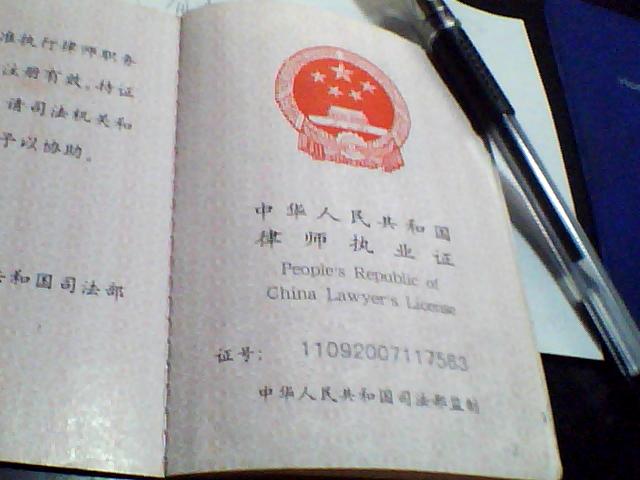 准执行律师职务
注册有效。持证
请司法机关和
予以协助。
共和国司法部
中华人民共和国
律师执业证
People's Republic of
China Lawyer's License
证号: 11092007117563
中华人民共和国司法部监制